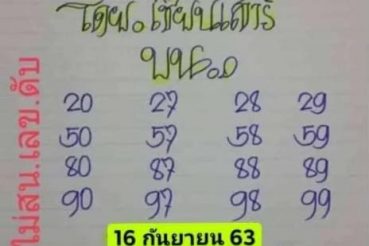 โดย.เซียนเสาร์
บน.๑
20 27 28 29
50 57 58 59
80 87 88 89
90 97 98 99
ไม่สน.เลข.ดับ
16 กันยายน 63